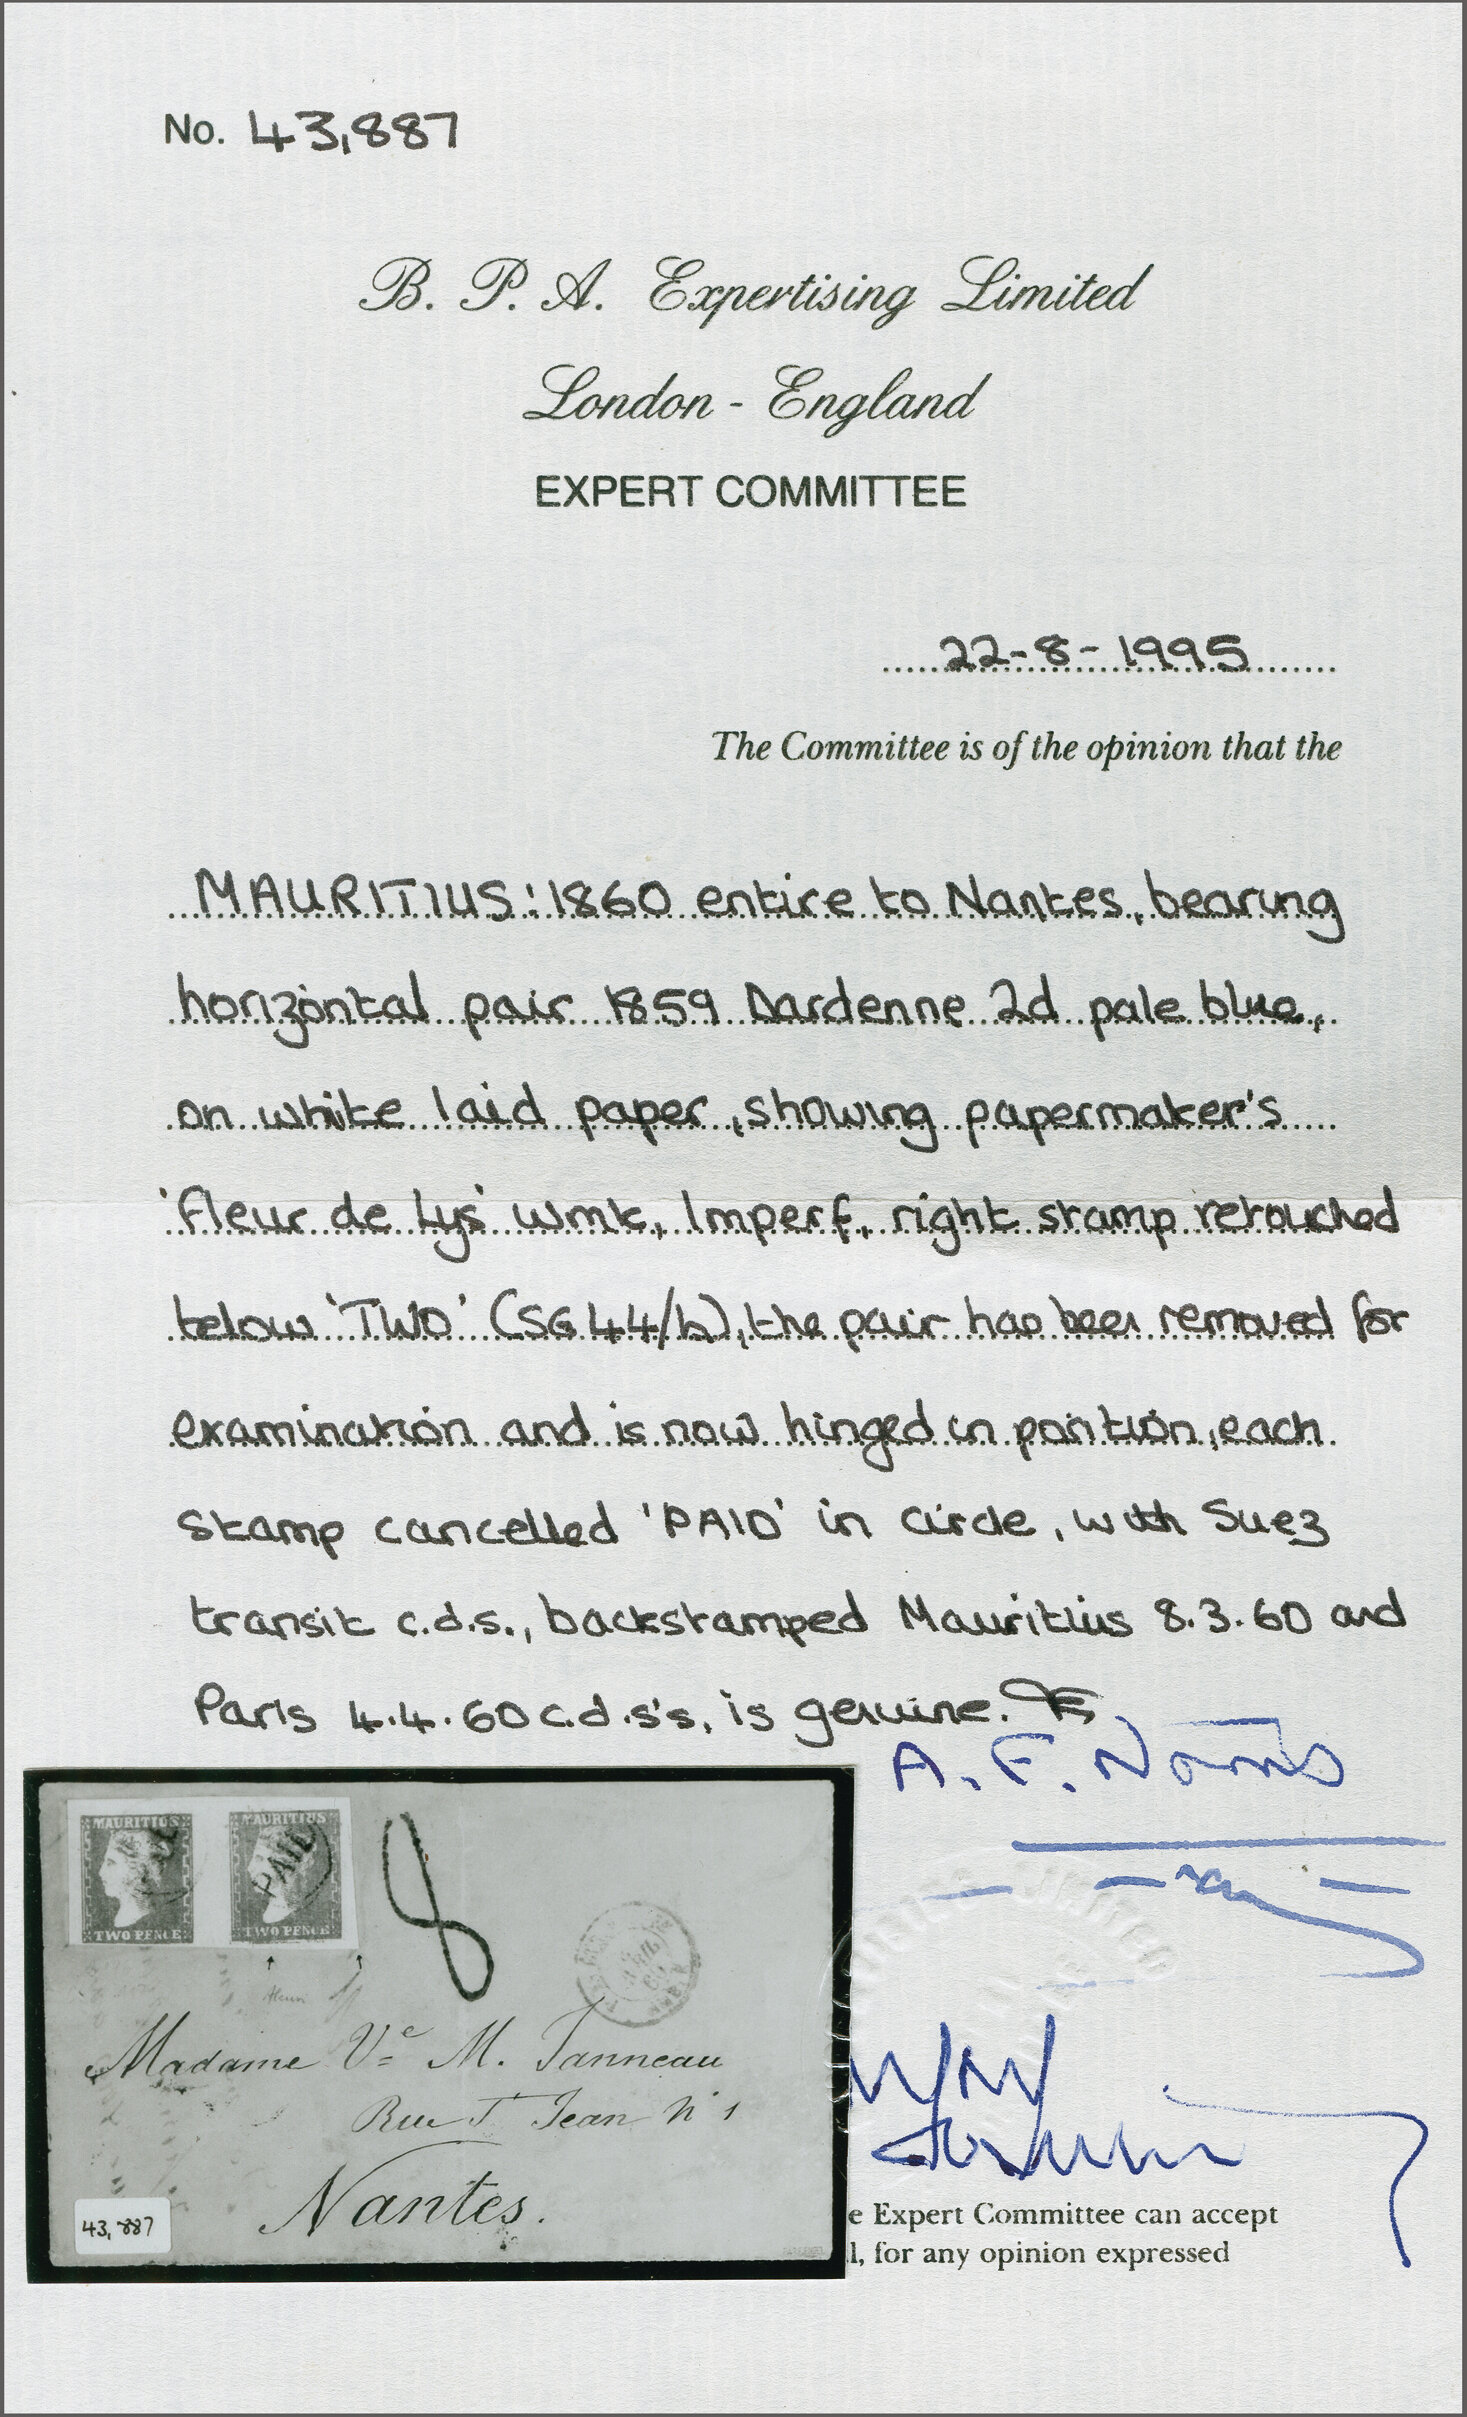 No. 43,887
B. P. A. Expertising Limited
London - England
EXPERT COMMITTEE
22-8-1995
The Committee is of the opinion that the
MAURITIUS: 1860 entire to Nantes, bearing
horizontal pair 1859 Dardenne 2d pale blue,
on white laid paper, showing papermaker's
'Fleur de Lys' wmk, Imperf, right stamp retouched
below 'TWO' (SG 44/h), the pair has been removed for
examination and is now hinged in position, each
stamp cancelled 'PAID' in circle, with Suez
transit c.d.s., backstamped Mauritius 8.3.60 and
Paris 4.4.60 c.d.s's, is genuine.
A. F. Norris
MAURITIUS MAURITIUS
PAID
TWO PENCE TWO PENCE
8
Madame Ve M. Janneau
Rue St Jean No 1
Nantes.
43,887
e Expert Committee can accept
l, for any opinion expressed